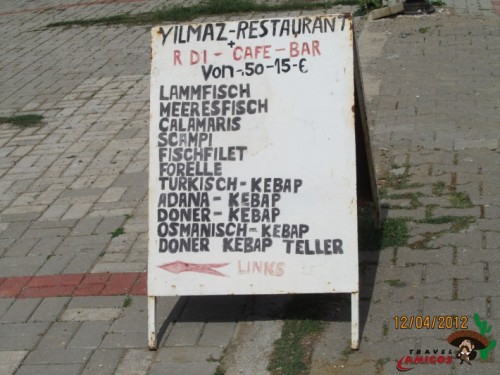 YILMAZ-RESTAURANT
+
R DI - CAFE - BAR
VON -.50 - 15-€
LAMMFISCH
MEERESFISCH
CALAMARIS
SCAMPI
FISCHFILET
FORELLE
TURKISCH - KEBAP
ADANA - KEBAP
DONER - KEBAP
OSMANISCH - KEBAP
DONER KEBAP TELLER
LINKS
12/04/2012
TRAVEL
AMIGOS